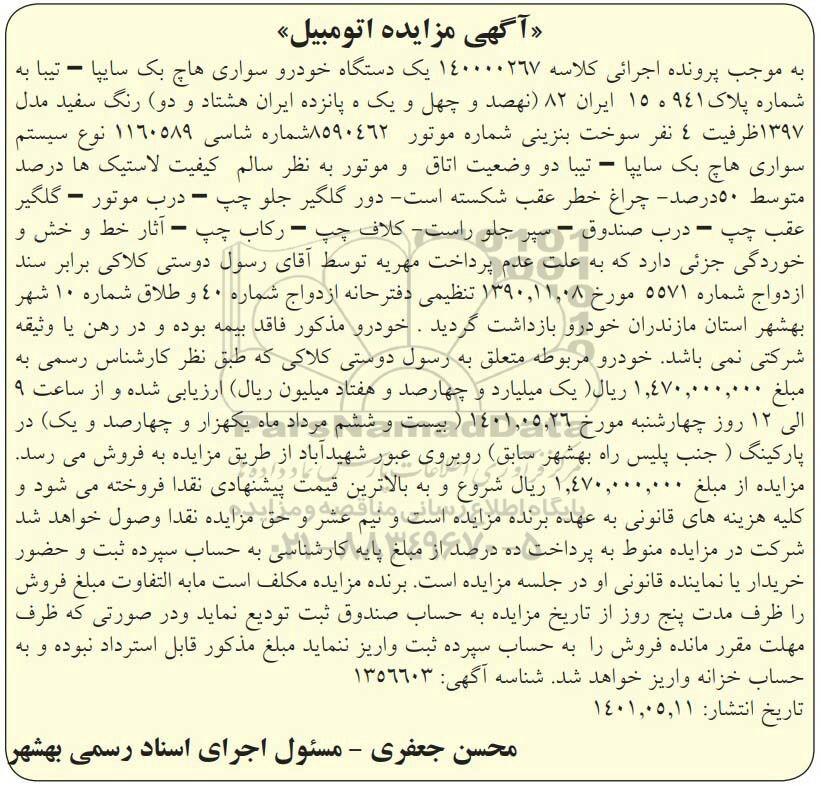 «آگهی مزایده اتومبیل»
به موجب پرونده اجرائی کلاسه ۱٤۰۰۰۰۲٦۷ یک دستگاه خودرو سواری هاچ بک سایپا – تیبا به
شماره پلاک۹٤۱ ه ۱۵ ایران ۸۲ (نهصد و چهل و یک ه پانزده ایران هشتاد و دو) رنگ سفید مدل
۱۳۹۷ظرفیت ٤ نفر سوخت بنزینی شماره موتور ۸۵۹۰٤٦۲شماره شاسی ۱۱٦۰۵۸۹ نوع سیستم
سواری هاچ بک سایپا – تیبا دو وضعیت اتاق و موتور به نظر سالم کیفیت لاستیک ها درصد
متوسط ۵۰درصد- چراغ خطر عقب شکسته است- دور گلگیر جلو چپ – درب موتور – گلگیر
عقب چپ – درب صندوق – سپر جلو راست- کلاف چپ – رکاب چپ – آثار خط و خش و
خوردگی جزئی دارد که به علت عدم پرداخت مهریه توسط آقای رسول دوستی کلاکی برابر سند
ازدواج شماره ۵۵۷۱ مورخ ۱۳۹۰,۱۱,۰۸ تنظیمی دفترحانه ازدواج شماره ٤۰ و طلاق شماره ۱۰ شهر
بهشهر استان مازندران خودرو بازداشت گردید . خودرو مذکور فاقد بیمه بوده و در رهن یا وثیقه
شرکتی نمی باشد. خودرو مربوطه متعلق به رسول دوستی کلاکی که طبق نظر کارشناس رسمی به
مبلغ ۱,٤۷۰,۰۰۰,۰۰۰ ریال( یک میلیارد و چهارصد و هفتاد میلیون ریال) ارزیابی شده و از ساعت ۹
الی ۱۲ روز چهارشنبه مورخ ۱٤۰۱,۰۵,۲٦ ( بیست و ششم مرداد ماه یکهزار و چهارصد و یک) در
پارکینگ ( جنب پلیس راه بهشهر سابق) روبروی عبور شهیدآباد از طریق مزایده به فروش می رسد.
مزایده از مبلغ ۱,٤۷۰,۰۰۰,۰۰۰ ریال شروع و به بالاترین قیمت پیشنهادی نقدا فروخته می شود و
کلیه هزینه های قانونی به عهده برنده مزایده است و نیم عشر و حق مزایده نقدا وصول خواهد شد
شرکت در مزایده منوط به پرداخت ده درصد از مبلغ پایه کارشناسی به حساب سپرده ثبت و حضور
خریدار یا نماینده قانونی او در جلسه مزایده است. برنده مزایده مکلف است مابه التفاوت مبلغ فروش
را ظرف مدت پنج روز از تاریخ مزایده به حساب صندوق ثبت تودیع نماید ودر صورتی که ظرف
مهلت مقرر مانده فروش را به حساب سپرده ثبت واریز ننماید مبلغ مذکور قابل استرداد نبوده و به
حساب خزانه واریز خواهد شد. شناسه آگهی: ۱۳۵٦٦۰۳
تاریخ انتشار: ۱٤۰۱,۰۵,۱۱
محسن جعفری - مسئول اجرای اسناد رسمی بهشهر
ParsNamadData
پایگاه اطلاع رسانی مناقصه و مزایده
۰۲۱-۸۸۳۴۹۶۷۰-۵